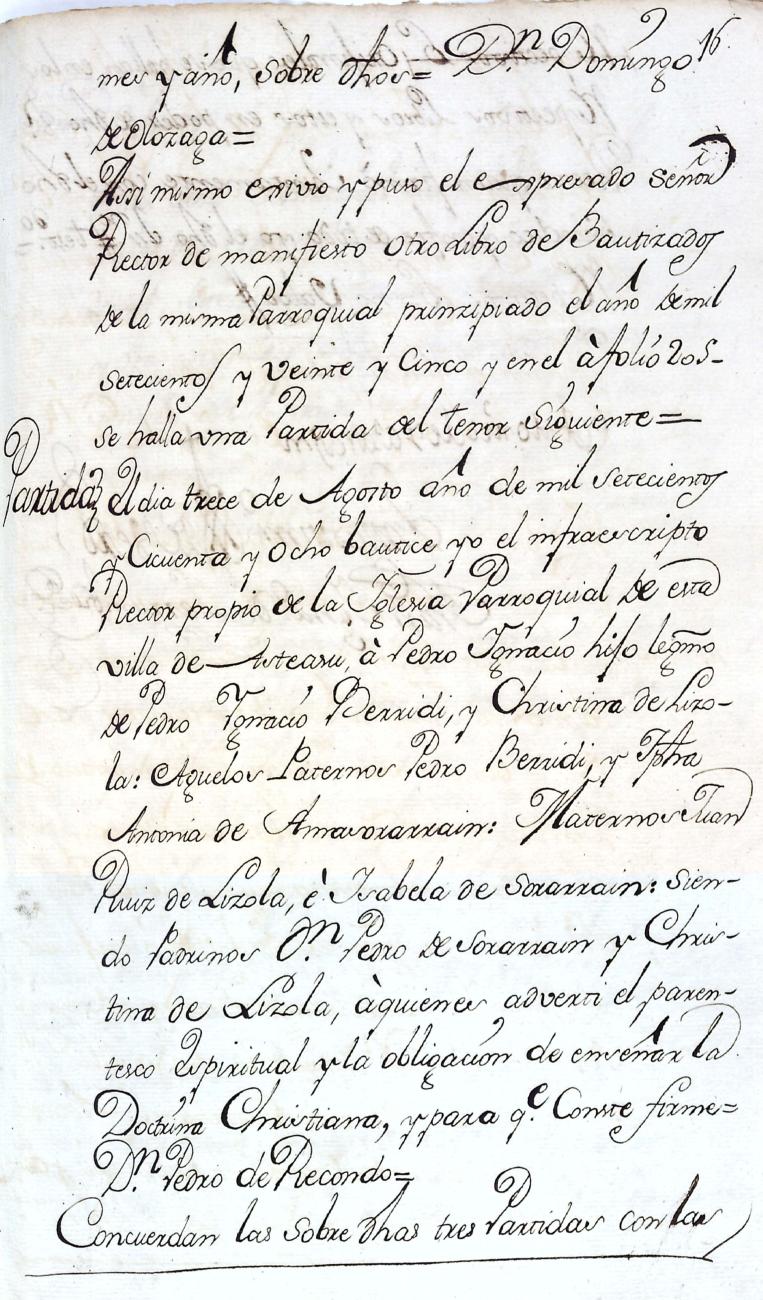 16
mes y año, sobre dhos= Dn. Domingo
de Olozaga=
Assi mismo envio y puso el expresado señor
Rector de manifiesto otro Libro de Bautizados
de la misma Parroquial prinzipiado el año de mil
setecientos y veinte y Cinco y en el à folio 205-
se halla vna Partida del tenor Siguiente=
Partida El dia trece de Agosto año de mil setecientos
y Cicuenta y Ocho bautice yo el infraescripto
Rector propio de la Iglesia Parroquial de esta
villa de Asteasu, à Pedro Ignacio hijo legmo
de Pedro Ignacio Berridi, y Christina de Lizo-
la: Aguelos Paternos Pedro Berridi, y Jpha
Antonia de Amasorarrain: Maternos Juan
Ruiz de Lizola, è Isabela de Sorarrain: sien-
do Padrinos Dn. Pedro de Sorarrain y Chris-
tina de Lizola, à quienes adverti el paren-
tesco Espiritual y la obligacion de enseñar la
Doctrina Christiana, y para qe. Conste firme=
Dn. Pedro de Recondo=
Concuerdan las sobre dhas tres Partidas con las